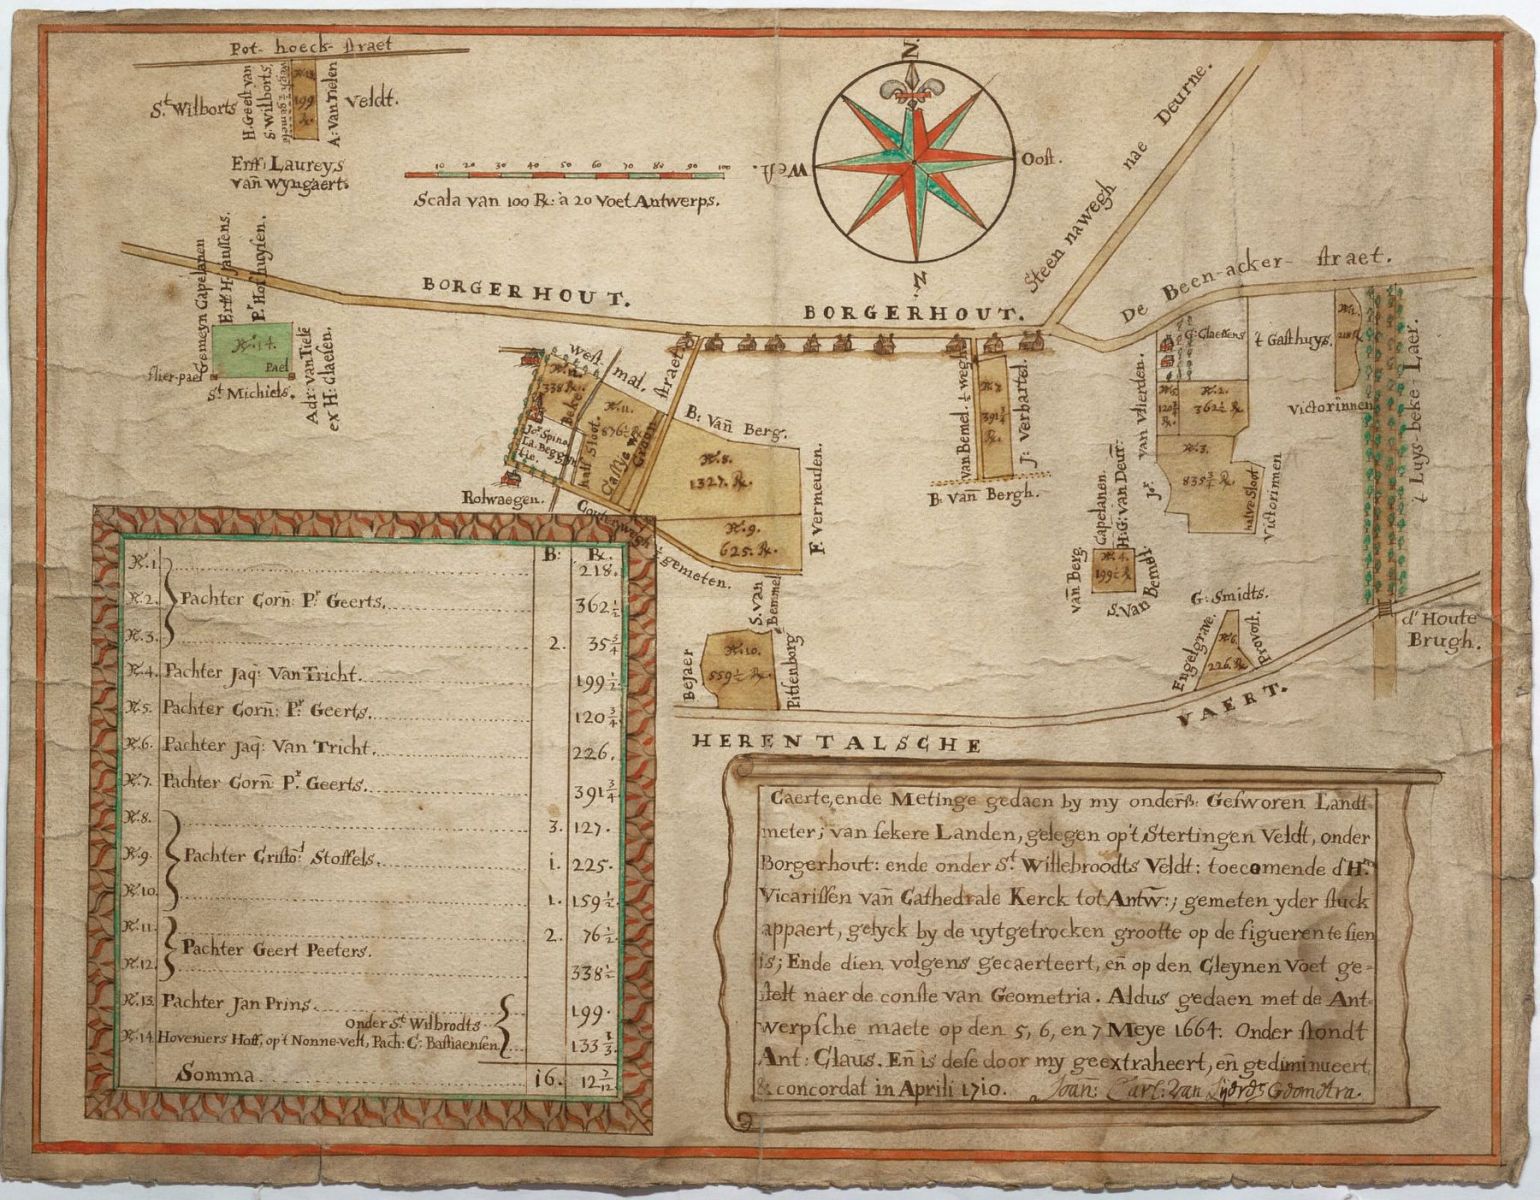 Pot-hoeck-straet
St Wilborts
H. Geest van
S. Wilborts
wegh ½ gemete
N. 13.
199
R.
A: van Tielen
Veldt.
Erff: Laureys
van Wyngaert.
10 20 30 40 50 60 70 80 90 100
Scala van 100 R: à 20 Voet Antwerps.
N.
Oost.
Z.
West.
Steen nawegh nae Deurne.
De Been-acker-straet.
BORGERHOUT.
BORGERHOUT.
Gemeyn Capelanen
Erff H: Janssens.
Pr Hofhuysen.
N. 14.
Pael
slier-pael
St Michiels.
Adr: van Tiele
ex H: Claesen.
West mal. straet
N. 12.
338 R.
Beke
N. 11.
876½ R
half Sloot.
Jor Spino
La. Beggyn
tie.
Rolwaegen.
B: Van Berg.
N. 8.
1327. R.
N. 9.
625. R.
F. Vermeulen.
½ gemeten.
S. van
Bemmel
Bejaer
N. 10.
559½ R.
Pitsenborg
van Bemel. ½ wegh
N. 7.
391¾
R.
J: Verhartel.
B. Van Bergh.
G: Claessens
N. 5.
120¾
R
N. 2.
362½ R.
van Vlierden.
Jor
N. 3.
835¾ R.
halve Sloot
Victorinnen
't Gasthuys.
N. 1.
218 R
Victorinnen
't Luys-beke Laer.
Capelanen.
H: G: van Deur:
van Berg
N. 4.
199½ R
S. Van Bemel.
G: Smidts.
Engelgrave.
N. 6.
226. R.
Provost.
d'Houte
Brugh.
HERENTALSCHE VAERT.
B: R.
N. 1 218.
N. 2. Pachter Corn: Pr Geerts. 362½
N. 3. 2. 35¾
N. 4. Pachter Jaq: Van Tricht. 199½
N. 5. Pachter Corn: Pr Geerts. 120¾
N. 6. Pachter Jaq: Van Tricht. 226.
N. 7. Pachter Corn: Pr Geerts. 391¾
N. 8. 3. 127.
N. 9. Pachter Cristo: Stoffels. 1. 225.
N. 10. 1. 159½
N. 11. 2. 76½
Pachter Geert Peeters.
N. 12. 338½
N. 13 Pachter Jan Prins. 199.
onder St Wilbrodts
N. 14 Hoveniers Hoff, op't Nonne-velt, Pach: C: Bastiaensen. 133⅓
Somma 16. 12 7/12
Caerte, ende Metinge gedaen by my onderß: Gesworen Landt-
meter; van sekere Landen, gelegen op't Stertingen Veldt, onder
Borgerhout: ende onder St Willebroodts Veldt: toecomende d'Hrn
Vicarissen van Cathedrale Kerck tot Antw:; gemeten yder stuck
appaert, gelyck by de uytgetrocken grootte op de figueren te sien
is; Ende dien volgens gecaerteert, en op den Cleynen Voet ge-
stelt naer de conste van Geometria. Aldus gedaen met de Ant-
werpsche maete op den 5, 6, en 7 Meye 1664. Onder stondt
Ant: Claus. En is dese door my geextraheert, en gediminueert,
& concordat in Aprili 1710. Joan: Carl: Van Lyere Geometra.